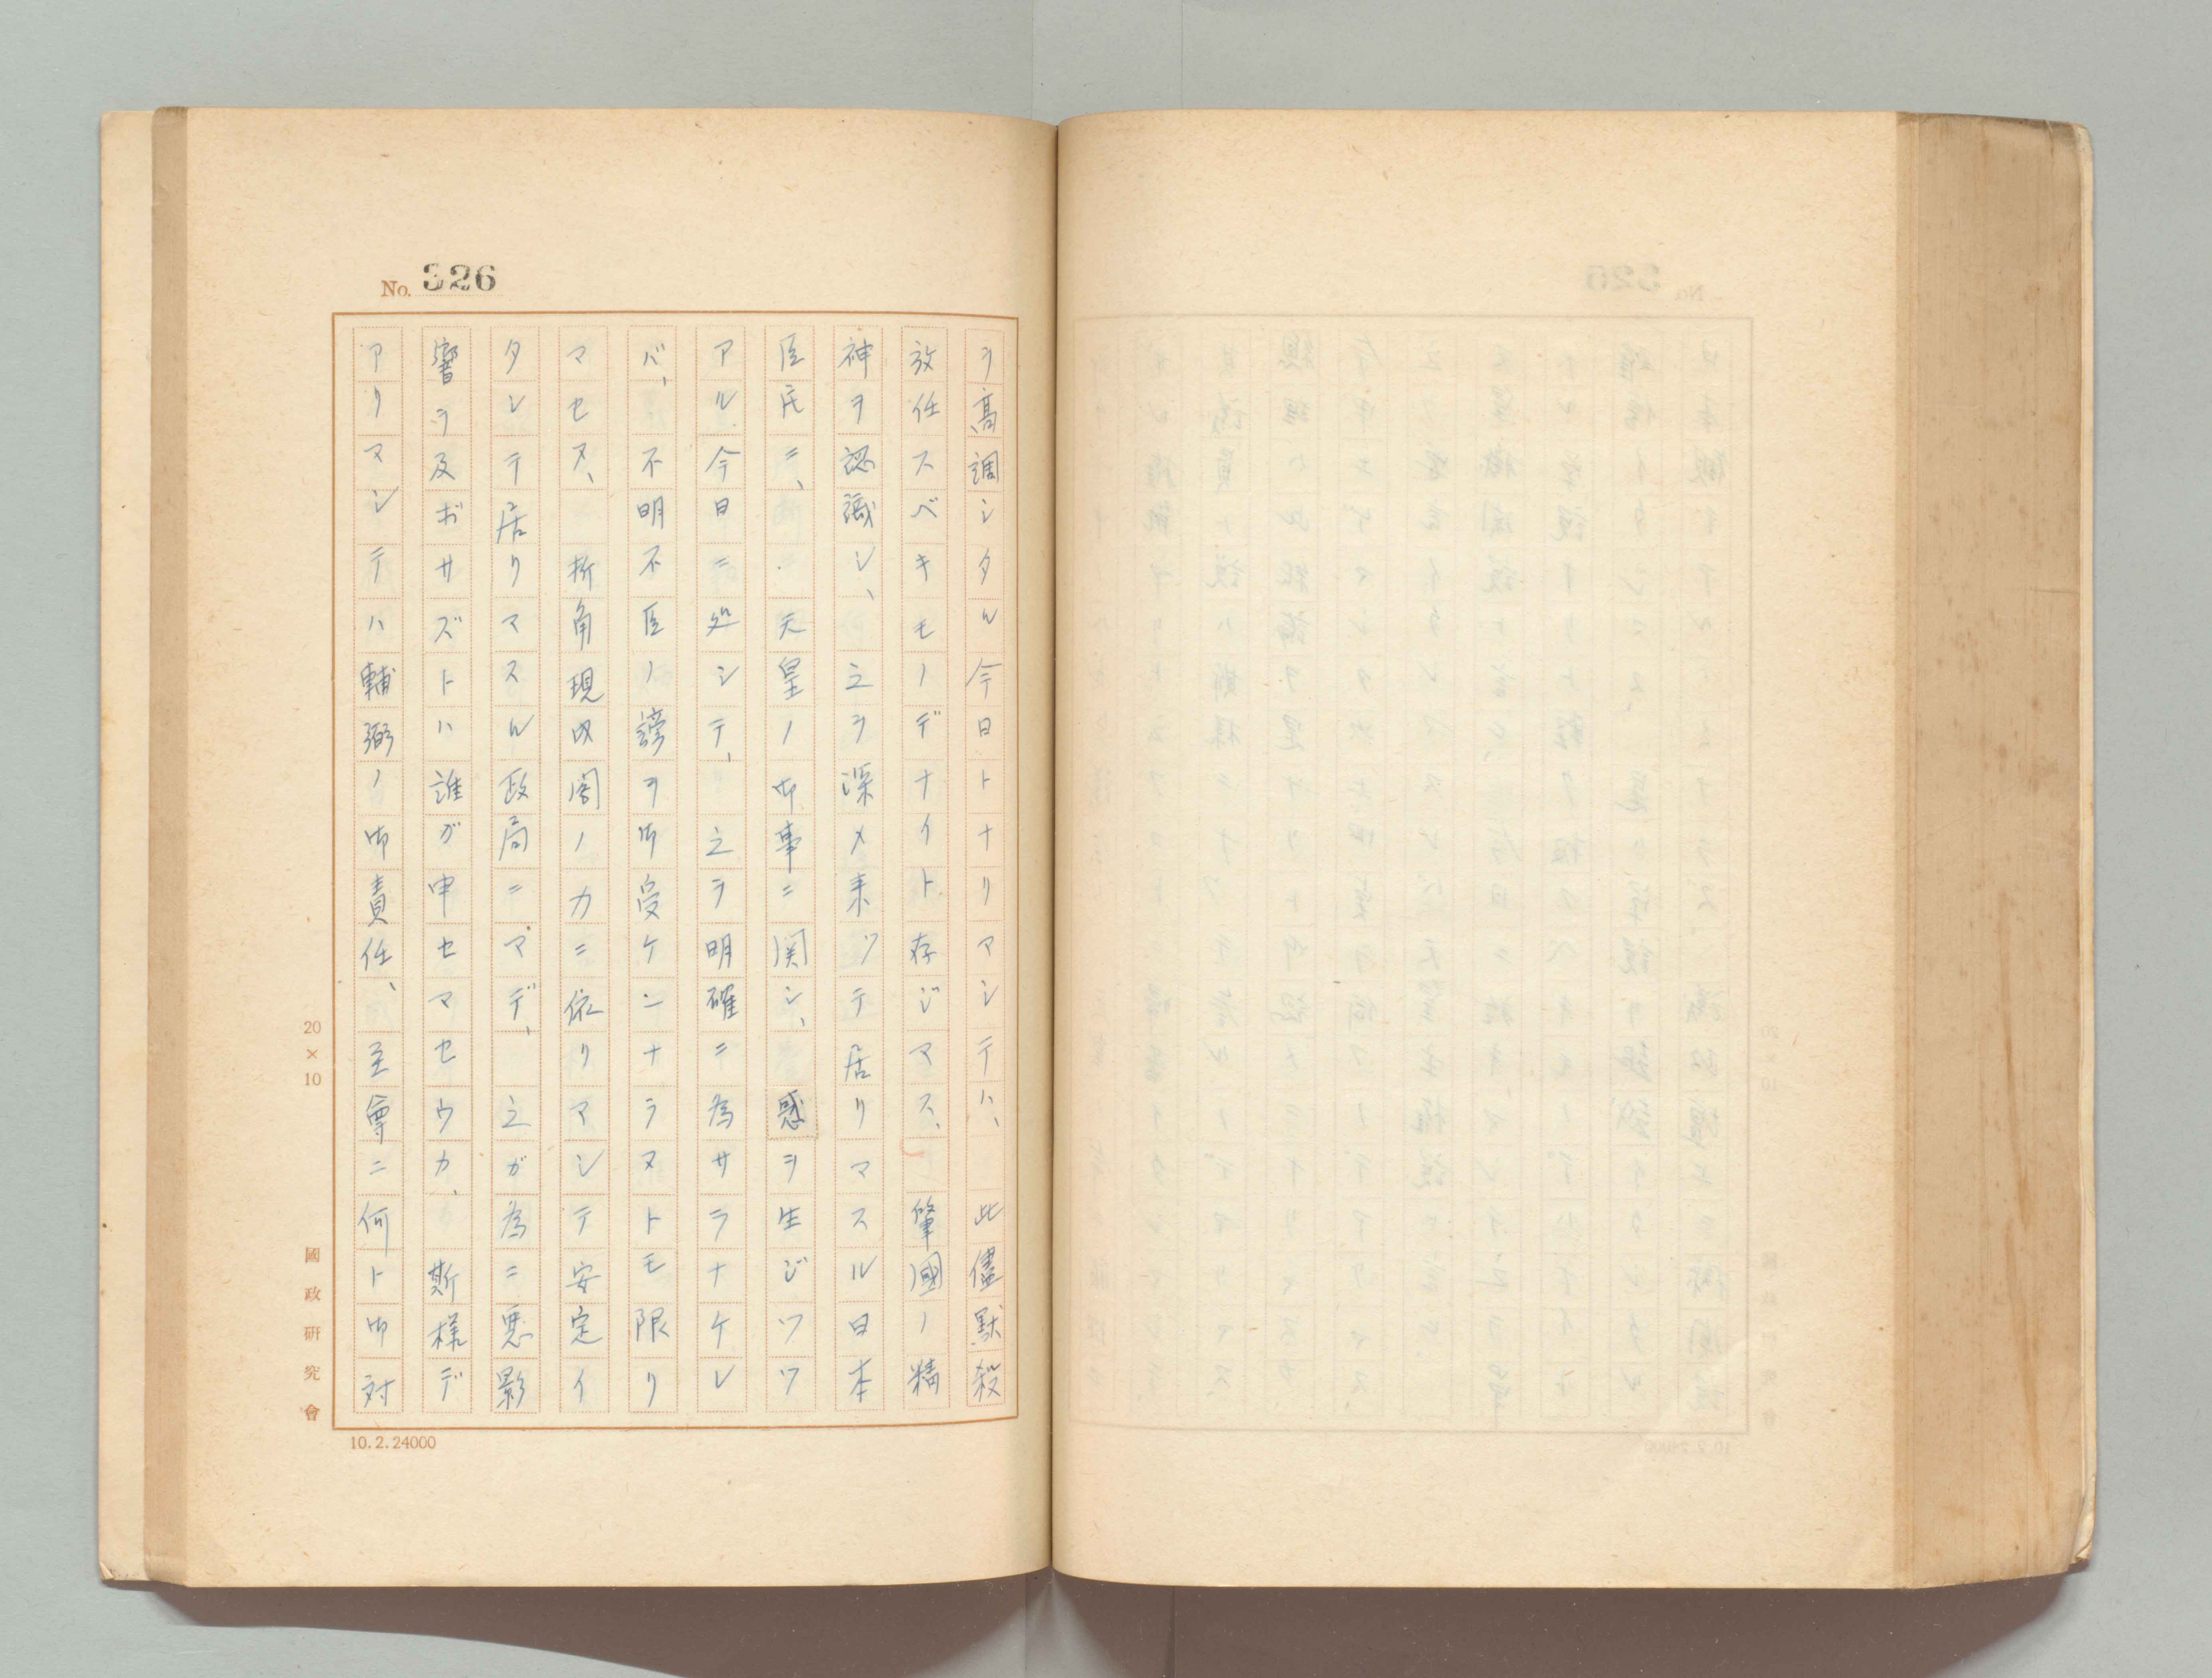 No. 326
ヲ高調シタル今日トナリマシテハ、此儘黙殺
放任スベキモノデナイト存ジマス、肇國ノ精
神ヲ認識シ、之ヲ深メ来ツテ居リマスル日本
臣民ニ、天皇ノ御事ニ関シ、惑ヲ生ジツツ
アル今日ニ処シテ、之ヲ明確ニ為サラナケレ
バ、不明不臣ノ謗ヲ御受ケニナラヌトモ限リ
マセヌ、折角現内閣ノ力ニ依リマシテ安定イ
タシテ居リマスル政局ニマデ、之ガ為ニ悪影
響ヲ及ボサズトハ誰ガ申セマセウカ、斯様デ
アリマシテハ輔弼ノ御責任、至尊ニ何ト御対
20×10
國政研究會
10.2.24000